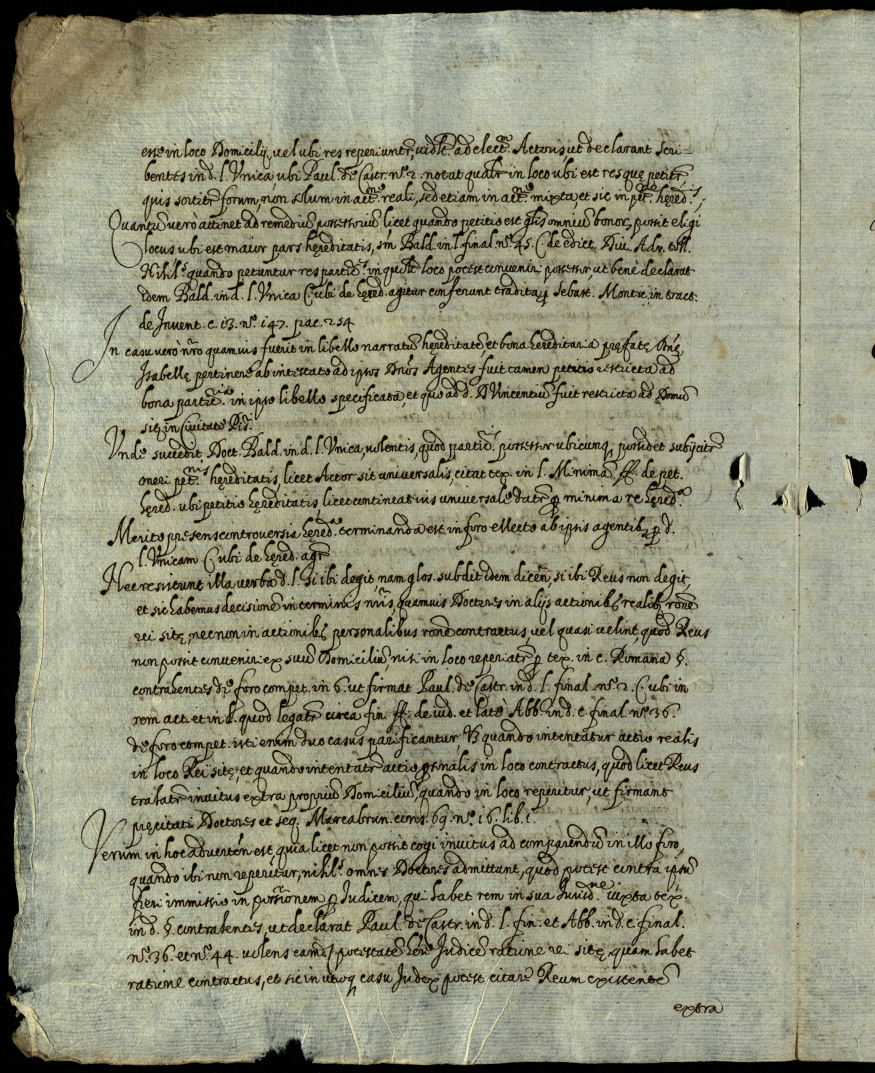 esse in loco Domicilij, vel ubi res reperiuntr, vidlt. ad elect.m Actoris ut declarant Scri-
bentes in d. l. Unica, ubi Paul. de Castr. n.o 2. notat qualr in loco ubi est res quę petitr
quis sortitr forum, non solum in act.ne reali, sed etiam in act.ne mixta et sic in pet.ne hęred.s
Quantũ verò attinet ad remediũ possessoriũ licet quando petitio est glis omniũ bonor, possit eligi
locus ubi est maior pars hęreditatis, sm Bald. in l. final. n.o 45. C. de edict. Diu. Adr. toll.
Nihil.s quando petuntur res partic.s in quolt loco potest conveniri possessor, ut benè declarat
idem Bald. in d. l. Unica C. ubi de hęred. agitur conferunt tradita p Sebast. Montic. in tract.
de Invent. c. 13. n.o 147. pac. 254
In casu verò nro quamvis fuerit in libello narratũ hęreditatẽ, et bona hereditaria pręfatę Dnę
Isabellę pertinere ab intestato ad ipsos Dnos Agentes fuit tamen petitio restricta ad
bona partic.ria in ipso libello specificata, et quo ad d. D Vincentiũ fuit restricta ad Domũ
sitã in Civitate
Unde succedit Doct. Bald. in d. l. Unica, volentis, quod partic.s possessor ubicunq possidet subijcitr
oneri pet.nis hęreditatis, licet Actor sit universalis, citat tex. in l. Minima ff. de pet.
hęred. ubi petitio hęreditatis, licet contineat ius universale datr p minima re hęred.a
Merito presens controversia hęred.a terminanda est in foro ellecto ab ipsis agentib, p d.
l. Unicam C. ubi de hęred. agr
Nec resistunt illa verba d. l. si ibi degit, nam glos. subdit idem dicen, si ibi Reus non degit,
et sic habemus decisionẽ in terminis nris, quamvis Doctores in alijs actionibs realib, rone
rei sitę, nec non in actionibs personalibus rone contractus, vel quasi velint, quod Reus
non possit conveniri ex suũ Domiciliũ, nisi in loco reperiatr p tex. in c. Romana §.
contrahentes de foro compet. in 6. ut firmat Paul. de Castr. in d. l. final. n.o 2. C. ubi in
rem act. et in l. quod legatr circa fin. ff. de iud. et latè Abb. in d. c. final. n.o 36.
de foro compet. isti enim duo casus parificantur, Vz quando intentatur actio realis
in loco Rei sitę, et quando intentatr actio psonalis in loco contractus, quod licet Reus
trahatr invitus extra propriũ Domiciliũ, quando in loco reperitur, ut firmant
pręcitati Doctores et seq. Marcabrun. cons. 69. n.o 16. lib. 1.
Verum in hoc adverten est, quia licet non possit cogi invitus ad comparendũ in illo foro,
quando ibi non reperitur, nihil.s omnes Doctores admittunt, quod potest contra ipsũ
fieri immissio in poss.ionem p Judicem, qui habet rem in sua Jurisd.ne iuxta tex.
in d. §. contrahentes, ut declarat Paul. de Castr. in d. l. fin. et Abb. in d. c. final.
n.o 36. et n.o 44. volens eamd. potestatẽ hẽre Judicẽ ratione rei sitę, quam habet
ratione contractus, et sic in utroq casu Judex potest citare Reum existentẽ
extra